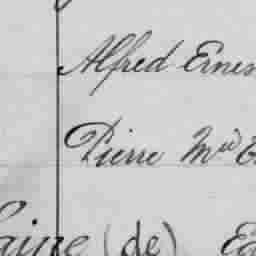 Alfred Ernes
Pierre Mie E
aine (de) E